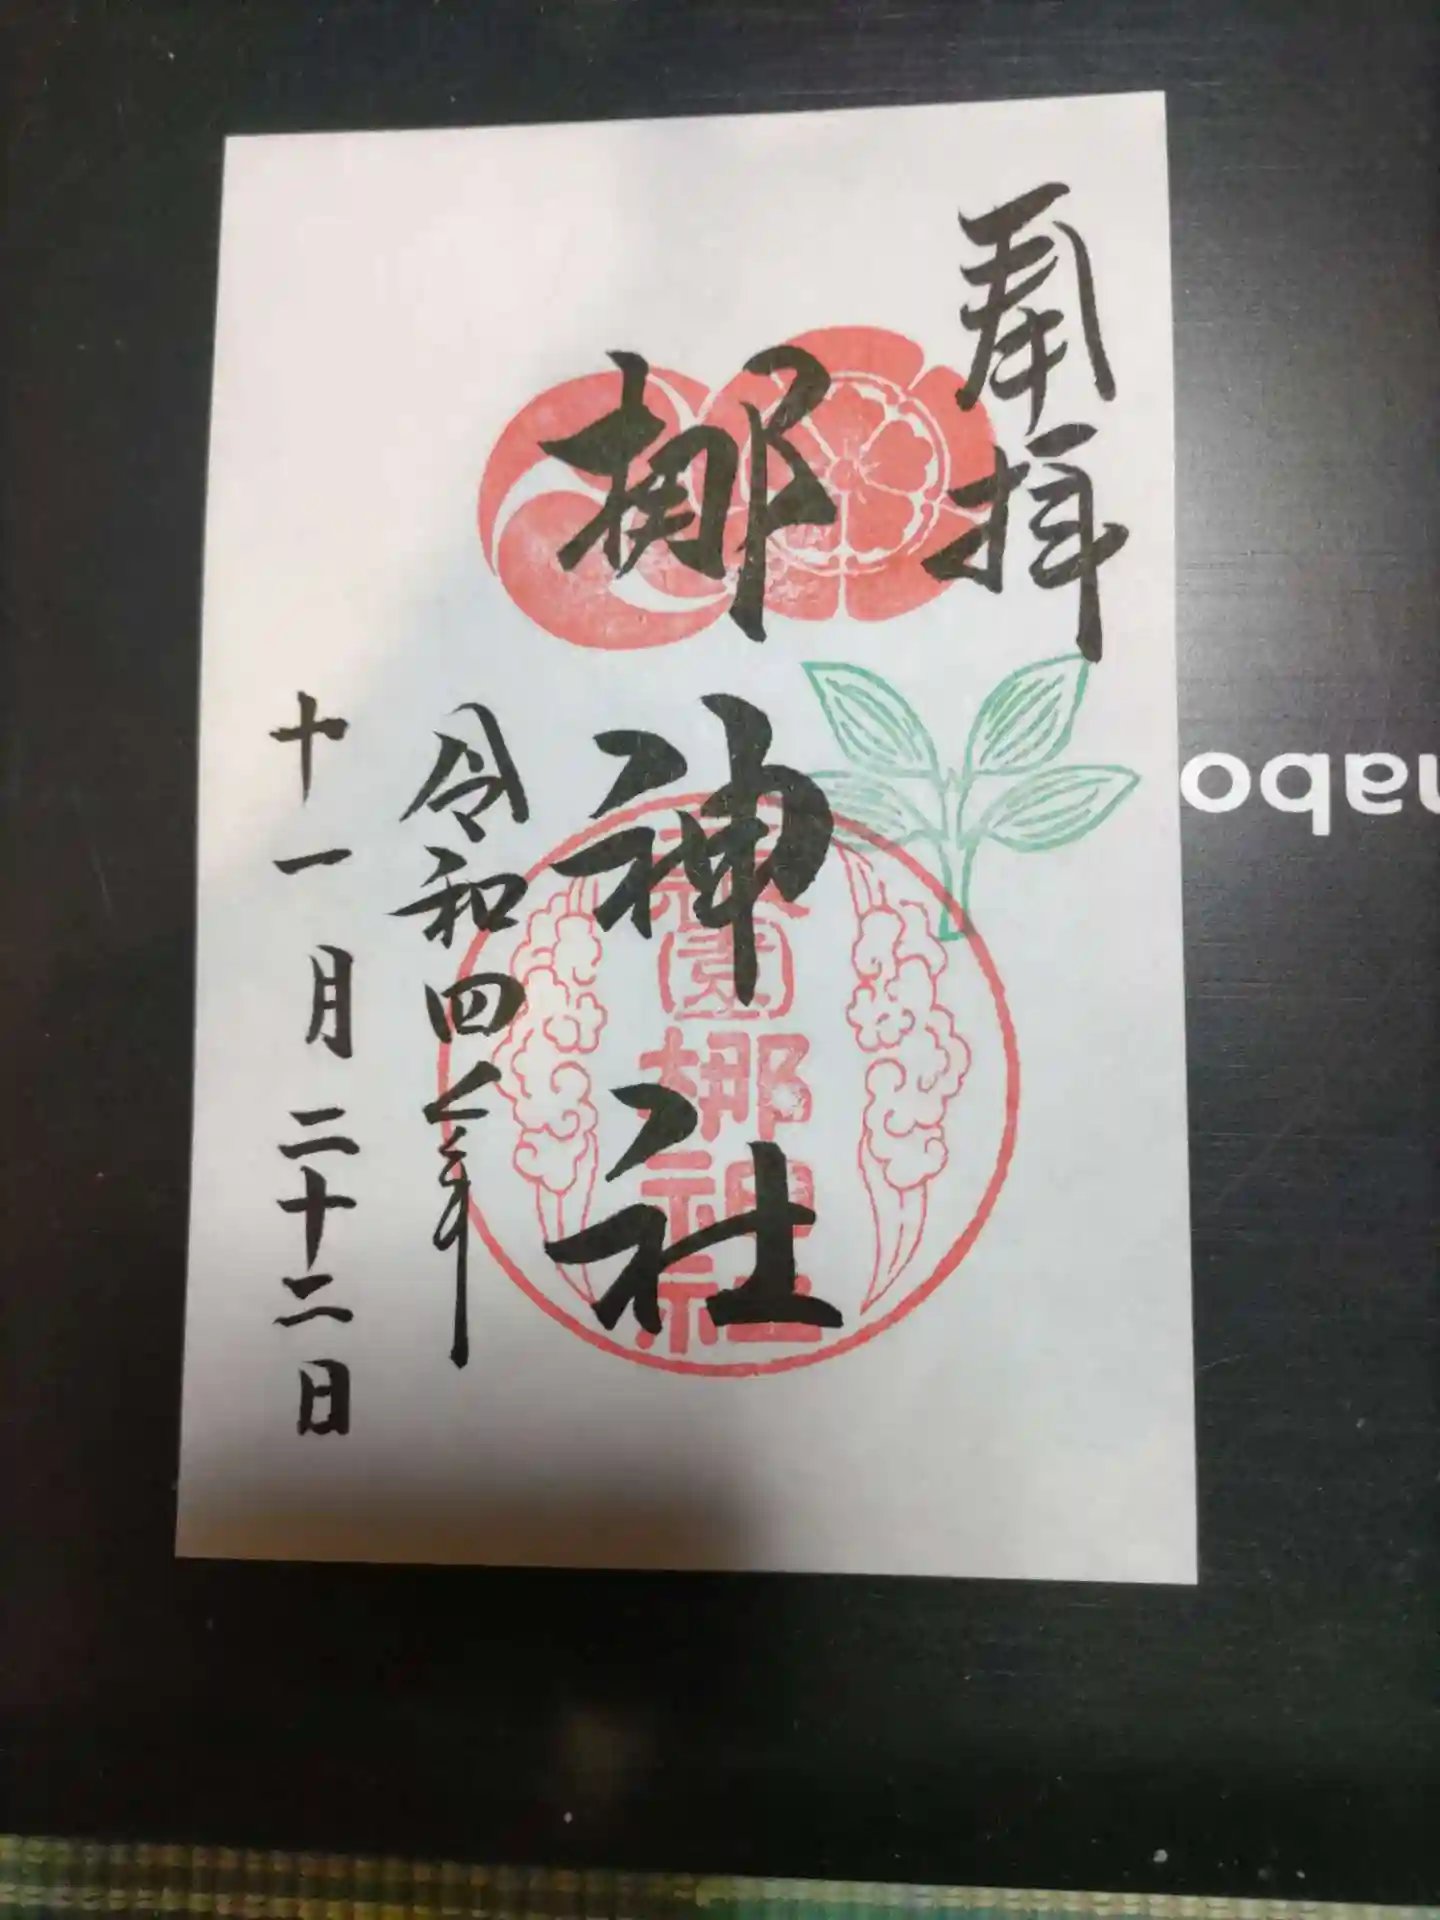 奉拝
梛神社
令和四年
十一月二十二日
梛神社
nabo